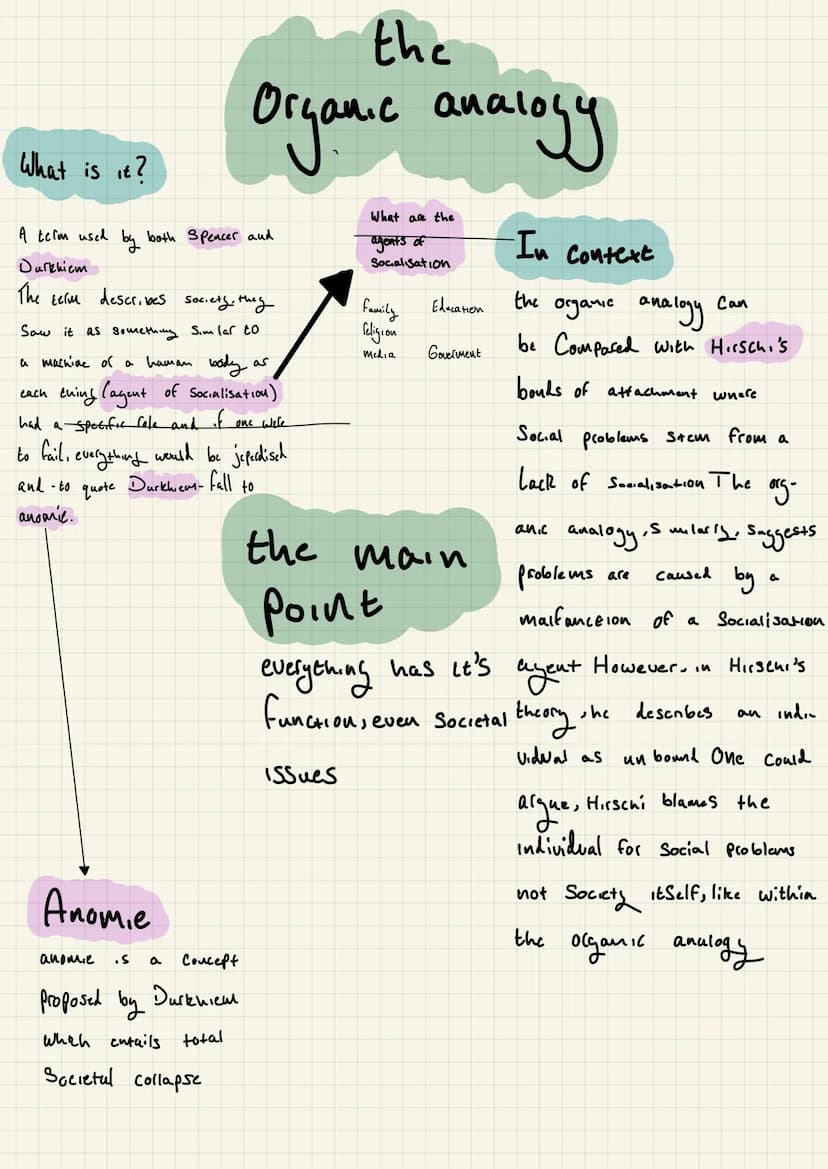 the
Organic analogy
What is it?
A term used by both Spencer and
Durkhiem
The term describes society. they
Saw it as something similar to
a machine or a human body as
each thing (agent of Socialisation)
had a specific role and if one were
to fail, everything would be jeperdised
and - to quote Durkhiem - fall to
anomie.
What are the
agents of
Socialisation
Family Education
religion
media Government
In Context
the organic analogy can
be Compared with Hirschi's
bonds of attachment where
Social problems stem from a
Lack of Socialisation The org-
anic analogy, similarly, suggests
problems are caused by a
malfunction of a Socialisation
agent However, in Hirschi's
theory, he describes an indi-
vidual as unbound One could
argue, Hirschi blames the
individual for social problems
not Society itself, like within
the organic analogy
the main
Point
everything has it's
function, even Societal
issues
Anomie
anomie is a concept
proposed by Durkhiem
which entails total
Societal collapse